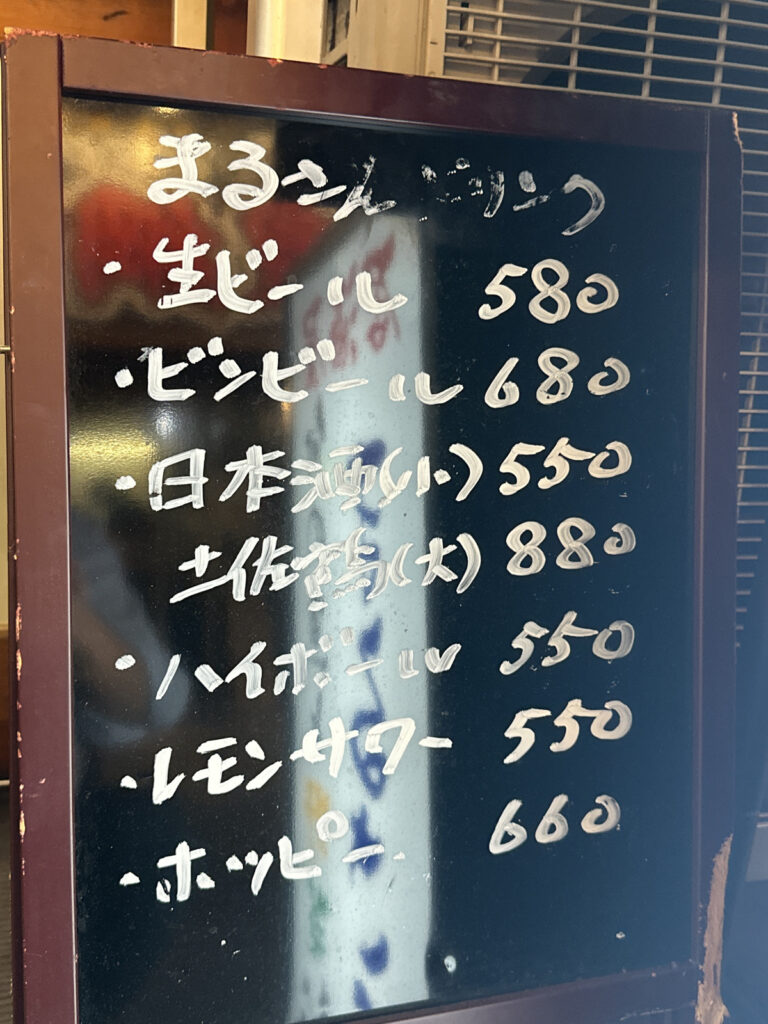 まるさんドリンク
・生ビール 580
・ビンビール 680
・日本酒(小) 550
土佐鶴(大) 880
・ハイボール 550
・レモンサワー 550
・ホッピー 660